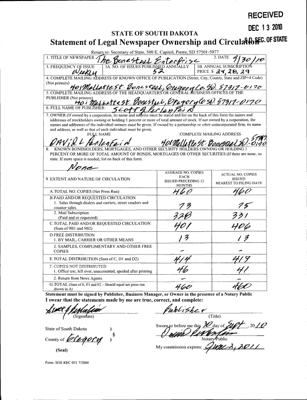 RECEIVED
DEC 13 2010
S.D. SEC. OF STATE
STATE OF SOUTH DAKOTA
Statement of Legal Newspaper Ownership and Circulation
Return to: Secretary of State, 500 E. Capitol, Pierre, SD 57501-5077
1. TITLE OF NEWSPAPER The Bonesteel Enterprise
2. DATE 9/30/10
3. FREQUENCY OF ISSUE Weekly
3A. NO. OF ISSUES PUBLISHED ANNUALLY 52
3B. ANNUAL SUBSCRIPTION PRICE $
4. COMPLETE MAILING ADDRESS OF KNOWN OFFICE OF PUBLICATION (Street, City, County, State and ZIP+4 Code) (Not printers)
5. COMPLETE MAILING ADDRESS OF THE HEADQUARTERS OR GENERAL BUSINESS OFFICES OF THE PUBLISHER (Not printer)
6. FULL NAME OF PUBLISHER:
7. OWNER (If owned by a corporation, its name and address must be stated and list on the back of this form the names and addresses of stockholders owning or holding 1 percent or more of total amount of stock. If not owned by a corporation, the names and addresses of the individual owners must be given. If owned by a partnership or other unincorporated firm, its name and address, as well as that of each individual must be given.
FULL NAME
COMPLETE MAILING ADDRESS
8. KNOWN BONDHOLDERS, MORTGAGES, AND OTHER SECURITY HOLDERS OWNING OR HOLDING 1 PERCENT OR MORE OF TOTAL AMOUNT OF BONDS, MORTGAGES OR OTHER SECURITIES (If there are none, so state. If more space is needed, list on back of this form.
None
9. EXTENT AND NATURE OF CIRCULATION
AVERAGE NO. COPIES EACH ISSUE DURING PRECEDING 12 MONTHS
ACTUAL NO. COPIES ISSUED NEAREST TO FILING DATE
A. TOTAL NO. COPIES (Net Press Run) 460 460
B. PAID AND/OR REQUESTED CIRCULATION
1. Sales through dealers and carriers, street vendors and counter sales. 73 75
2. Mail Subscription (Paid and or requested) 328 331
C. TOTAL PAID AND/OR REQUESTED CIRCULATION (Sum of 9B1 and 9B2) 401 406
D. FREE DISTRIBUTION
1. BY MAIL, CARRIER OR OTHER MEANS 13 13
2. SAMPLES, COMPLIMENTARY AND OTHER FREE COPIES - -
E. TOTAL DISTRIBUTION (Sum of C, D1 and D2) 414 419
F. COPIES NOT DISTRIBUTED
1. Office use, left over, unaccounted, spoiled after printing 46 41
2. Return from News Agents - -
G. TOTAL (Sum of E, F1 and F2 - Should equal net press run shown in A) 460 460
Statement must be signed by Publisher, Business Manager, or Owner in the presence of a Notary Public
I swear that the statements made by me are true, correct, and complete:
Publisher
(Signature) (Title)
State of South Dakota )
Sworn to before me this 30 day of Sept 20 10
County of Gregory )
Notary Public
(Seal)
My commission expires: 2011